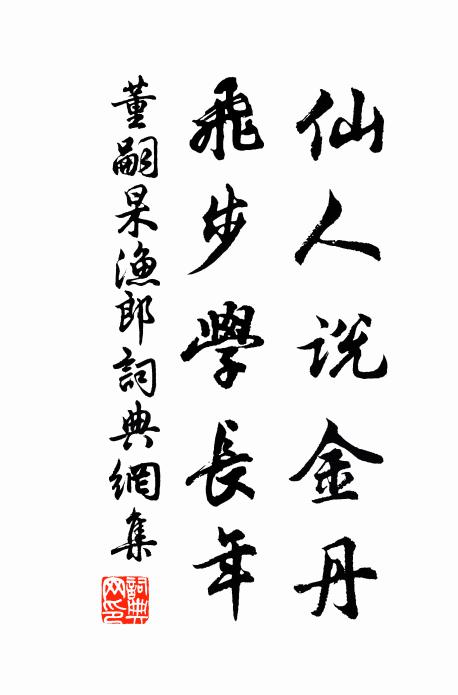 仙人说金丹
飛步學長年
董嗣杲漁郎詞典網集
詞典網印